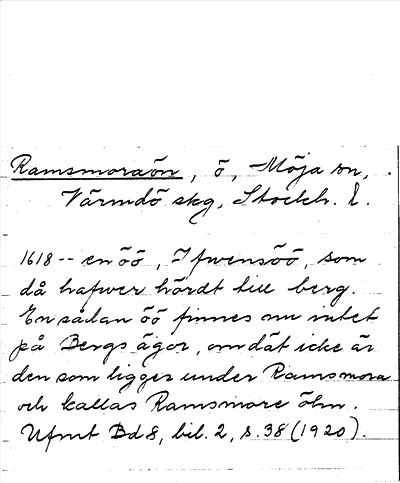 Ramsmoraön, ö, Möja sn,
Värmdö skg, Stockh. l.
1618 -- en öö, Ifwensöö, som
då hafwer hördt till berg.
En sådan öö finnes nu intet
på Bergs ägor, om dät icke är
den som ligger under Ramsmora
och kallas Ramsmore öhn.
Ufmt Bd 8, bil. 2, s. 38 (1920).